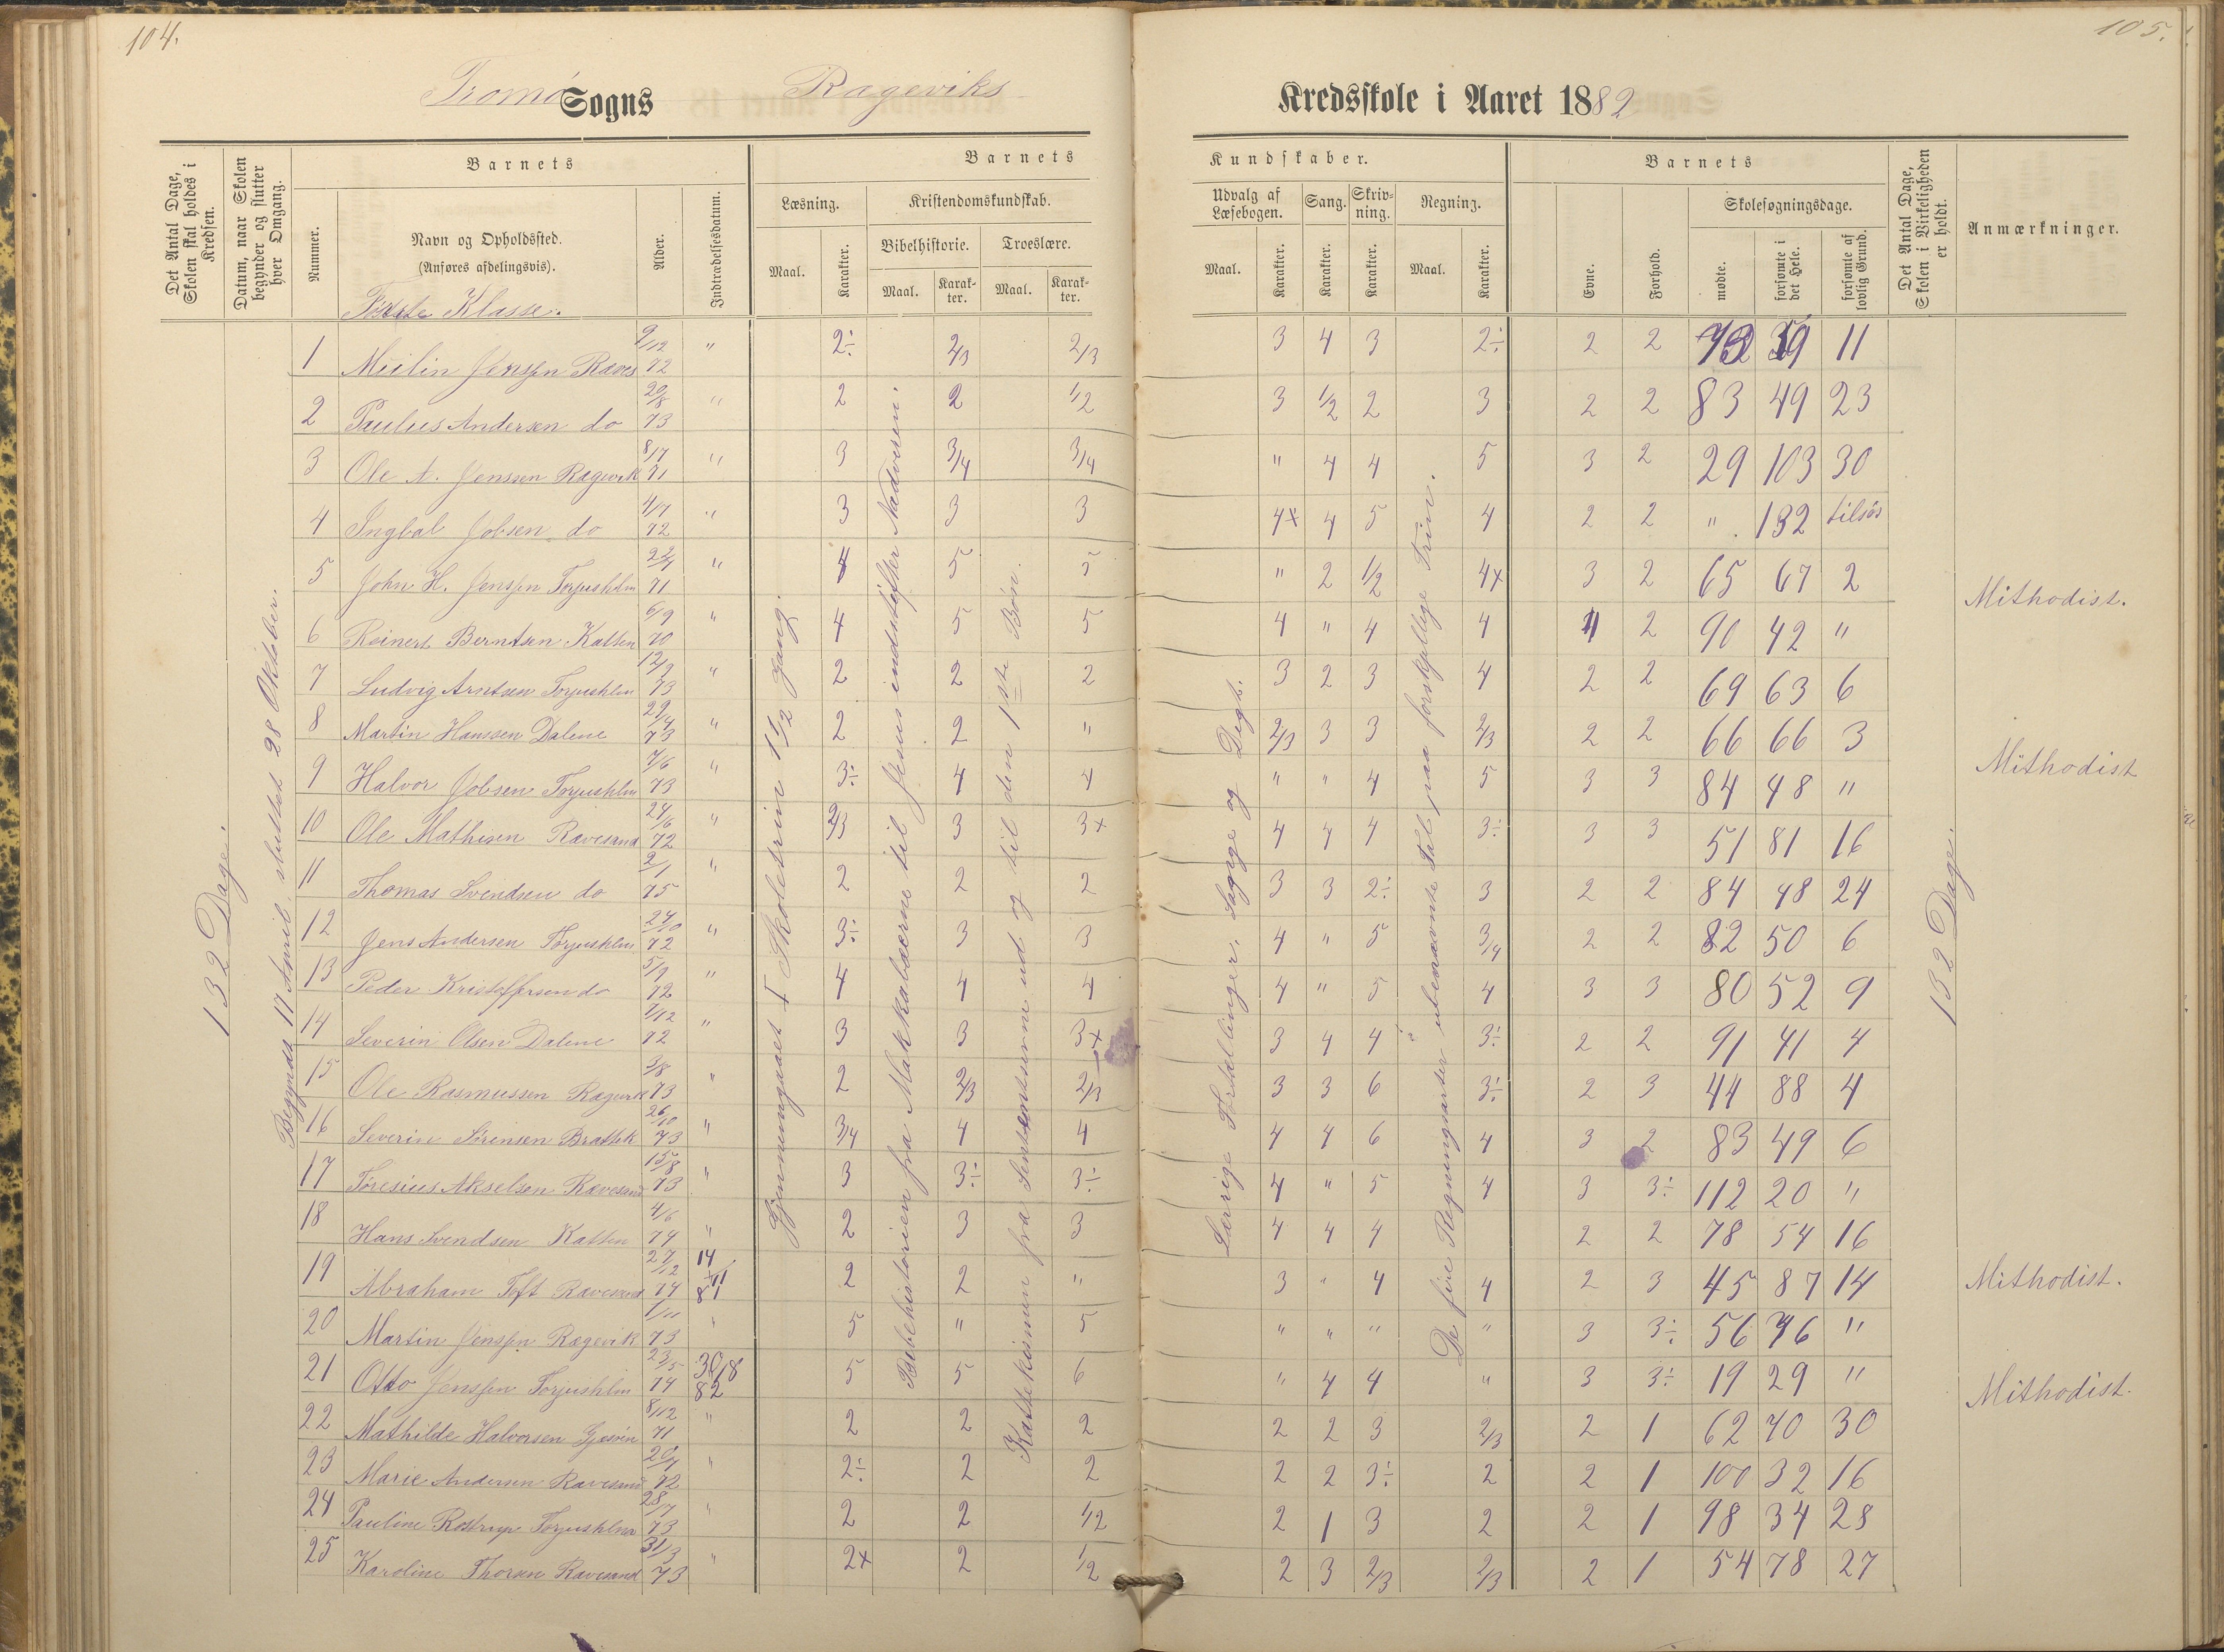 104.
105.
Tromø Sogns Rageviks Kredsskole i Aaret 1882
Det Antal Dage, Skolen skal holdes i Kredsen.
Datum, naar Skolen begynder og slutter hver Omgang.
Barnets
Nummer.
Navn og Opholdssted.
(Anføres afdelingsvis).
Alder.
Indtrædelsesdatum.
Barnets
Læsning.
Maal.
Karakter.
Kristendomskundskab.
Bibelhistorie.
Maal.
Karakter.
Troeslære.
Maal.
Karakter.
Kundskaber.
Udvalg af Læsebogen.
Maal.
Karakter.
Sang.
Karakter.
Skrivning.
Karakter.
Regning.
Maal.
Karakter.
Barnets
Evne.
Forhold.
Skolesøgningsdage.
mødte.
forsømte i det Hele.
forsømte af lovlig Grund.
Det Antal Dage, Skolen i Virkeligheden er holdt.
Anmærkninger.
Første Klasse.
132 Dage.
Begyndt 17 April, sluttet 28 Oktober.
Gjennemgaaet I Skoletrin 1 1/2 Gang.
Bibelhistorien fra Makkabæerne til Jesus indstifter Nadveren.
Kathekismen fra ud og til den 1ste Bøn.
Lærrige Fortællinger, Sagge og Digt.
De fire Regningsarter i ubenævnte Tal paa forskjellige Trin.
132 Dage.
1 Miilin Jenssen Raves 9/12 72 " 2÷ 2/3 2/3 3 4 3 2÷ 2 2 11
2 Paulus Andersen do 20/8 73 " 2 2 1/2 3 1/2 2 3 2 2 83 49 23
3 Ole A. Jenssen Ragevik 8/7 71 " 3 3/4 3/4 " 4 4 5 3 2 29 103 30
4 Ingbal Jobsen do 4/7 72 " 3 3 3 4x 4 5 4 2 2 " 132 tilsøs
5 John H. Jenssen Torjusholm 22/4 71 " 4 5 5 " 2 1/2 4x 3 2 65 67 2 Mithodist.
6 Reinert Berntsen Katten 6/9 70 " 4 5 5 4 " 4 4 4 2 90 42 "
7 Ludvig Arntsen Torjushlm 12/9 73 " 2 2 2 3 2 3 4 2 2 69 63 6
8 Martin Hanssen Dalene 29/4 73 " 2 2 " 2/3 3 3 2/3 2 2 66 66 3
9 Halvor Jobsen Torjushlm 7/6 73 " 3÷ 4 4 " " 4 5 3 3 84 48 " Mithodist
10 Ole Mathisen Ravesand 24/6 72 " 2/3 3 3x 4 4 4 3÷ 3 3 51 81 16
11 Thomas Svendsen do 2/1 75 " 2 2 2 3 3 2÷ 3 2 2 84 48 24
12 Jens Andersen Torjushlm 24/10 72 " 3÷ 3 3 4 " 5 3/4 2 2 82 50 6
13 Peder Kristoffersen do 5/9 72 " 4 4 4 4 " 5 4 3 3 80 52 9
14 Severin Olsen Dalene 7/12 72 " 3 3 3x 3 4 4 3÷ 2 2 91 41 4
15 Ole Rasmussen Ragevik 3/8 73 " 2 2/3 2/3 3 3 6 3÷ 2 3 44 88 4
16 Severin Sørensen Brattek 26/10 73 " 3/4 4 4 4 4 6 4 3 2 83 49 6
17 Toresius Akselsen Ravesand 15/8 73 " 3 3÷ 3÷ 4 " 5 4 3 3÷ 112 20 "
18 Hans Svendsen Katten 4/6 74 " 2 3 3 4 4 4 2 2 78 54 16
19 Abraham Toft Ravesand 27/12 74 14/11 81 2 2 " 3 " 4 4 2 3 45 87 14 Mithodist.
20 Martin Jenssen Ragevik 1/11 73 " 5 " 5 " " " " 3 3÷ 56 76 "
21 Otto Jenssen Torjushlm 23/5 74 30/8 82 5 5 6 " 4 4 " 3 3÷ 19 29 " Mithodist.
22 Mathilde Halvorsen 8/12 71 " 2 2 2 2 2 3 2/3 2 1 62 70 30
23 Marie Andersen Ravesand 20/4 72 " 2÷ 2 2 2 2 3÷ 2 2 1 100 32 16
24 Pauline Rostrup Torjushlm 28/7 73 " 2 2 1/2 2 1 3 2 2 1 98 34 28
25 Karoline Thorsen Ravesand 31/3 73 " 2x 2 1/2 2 3 2/3 2/3 2 1 54 78 27